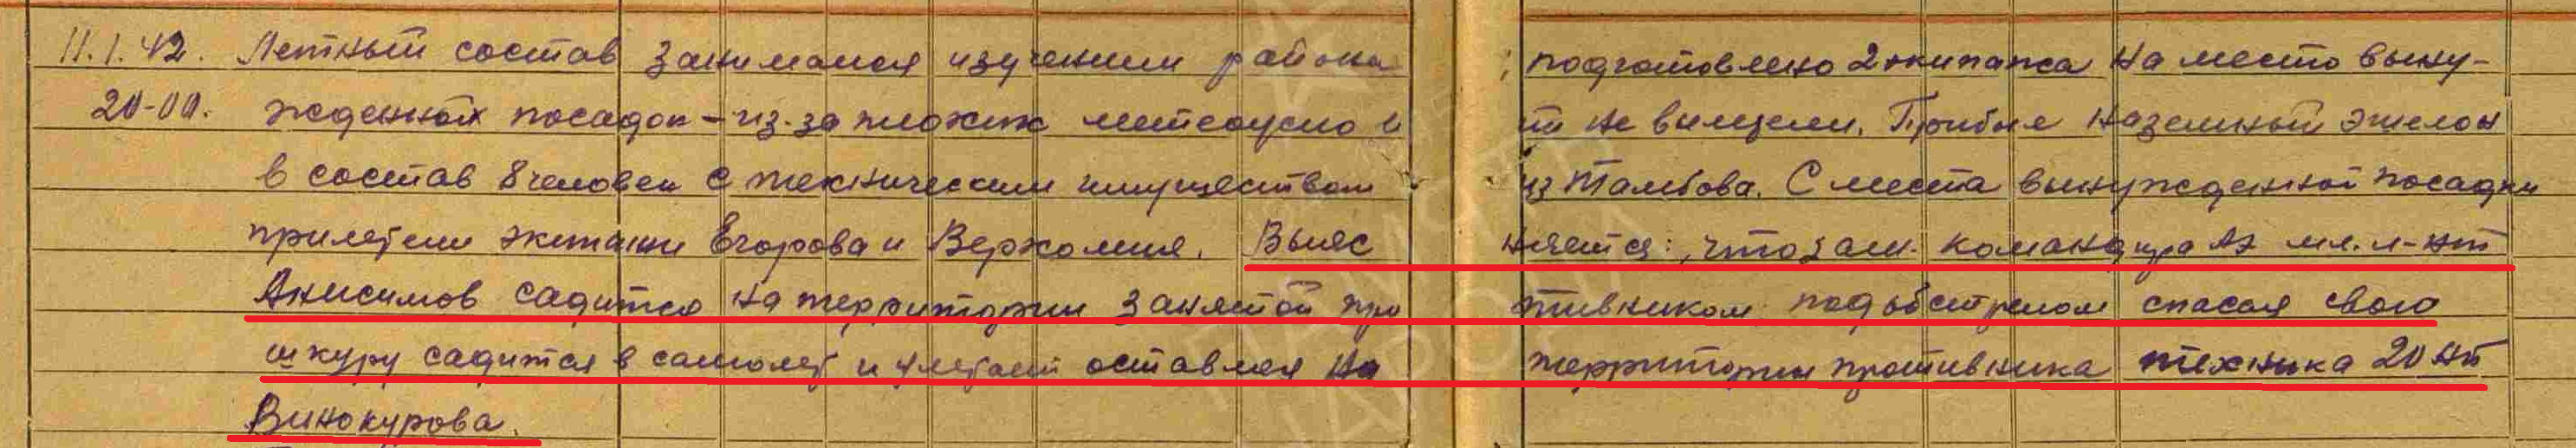 11.1.42. Летный состав занимался изучением района ; подготовлено 2 экипажа на место выну-
20-00. жденной посадки - из-за плохих метеоусло и ти не вылетели. Прибыл наземный эшелон
в состав 8 человек с техническим имуществом из Тамбова. С места вынужденной посадки
прилетели экипажи Егорова и Верхолия. Выяс няется:, что зам. командира АЭ мл. л-нт
Анисимов садится на территории занятой про тивником под обстрелом спасая свою
шкуру садится в самолет и улетает оставляя на территории противника техника 20 АП
Винокурова.